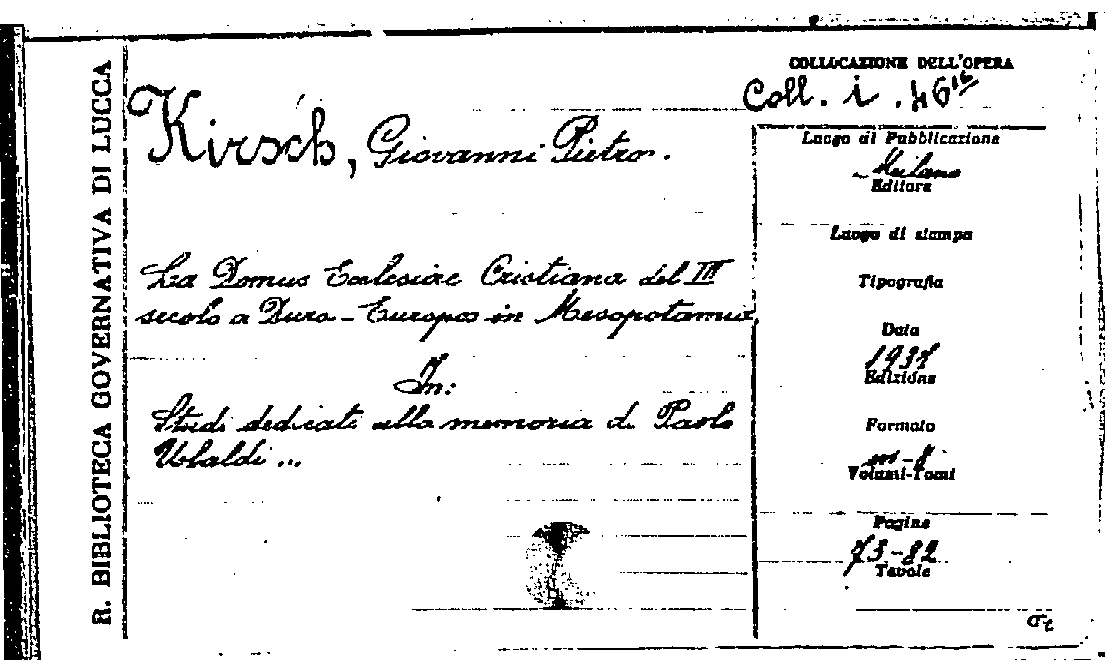 R. BIBLIOTECA GOVERNATIVA DI LUCCA
Kirsch, Giovanni Pietro.
La Domus Ecclesiae Cristiana del III
secolo a Dura-Europos in Mesopotamia
In:
Studi dedicati alla memoria di Paolo
Ubaldi ...
COLLOCAZIONE DELL'OPERA
Coll. i . 46
Luogo di Pubblicazione
Milano
Editore
Luogo di stampa
Tipografia
Data
Edizione
Formato
in-8
Volumi-Tomi
Pagine
73-82
Tavole